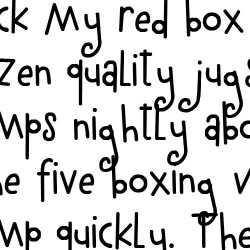 ck My red box
zen quality jugs
mps nightly abo
e five boxing w
mp quickly. The